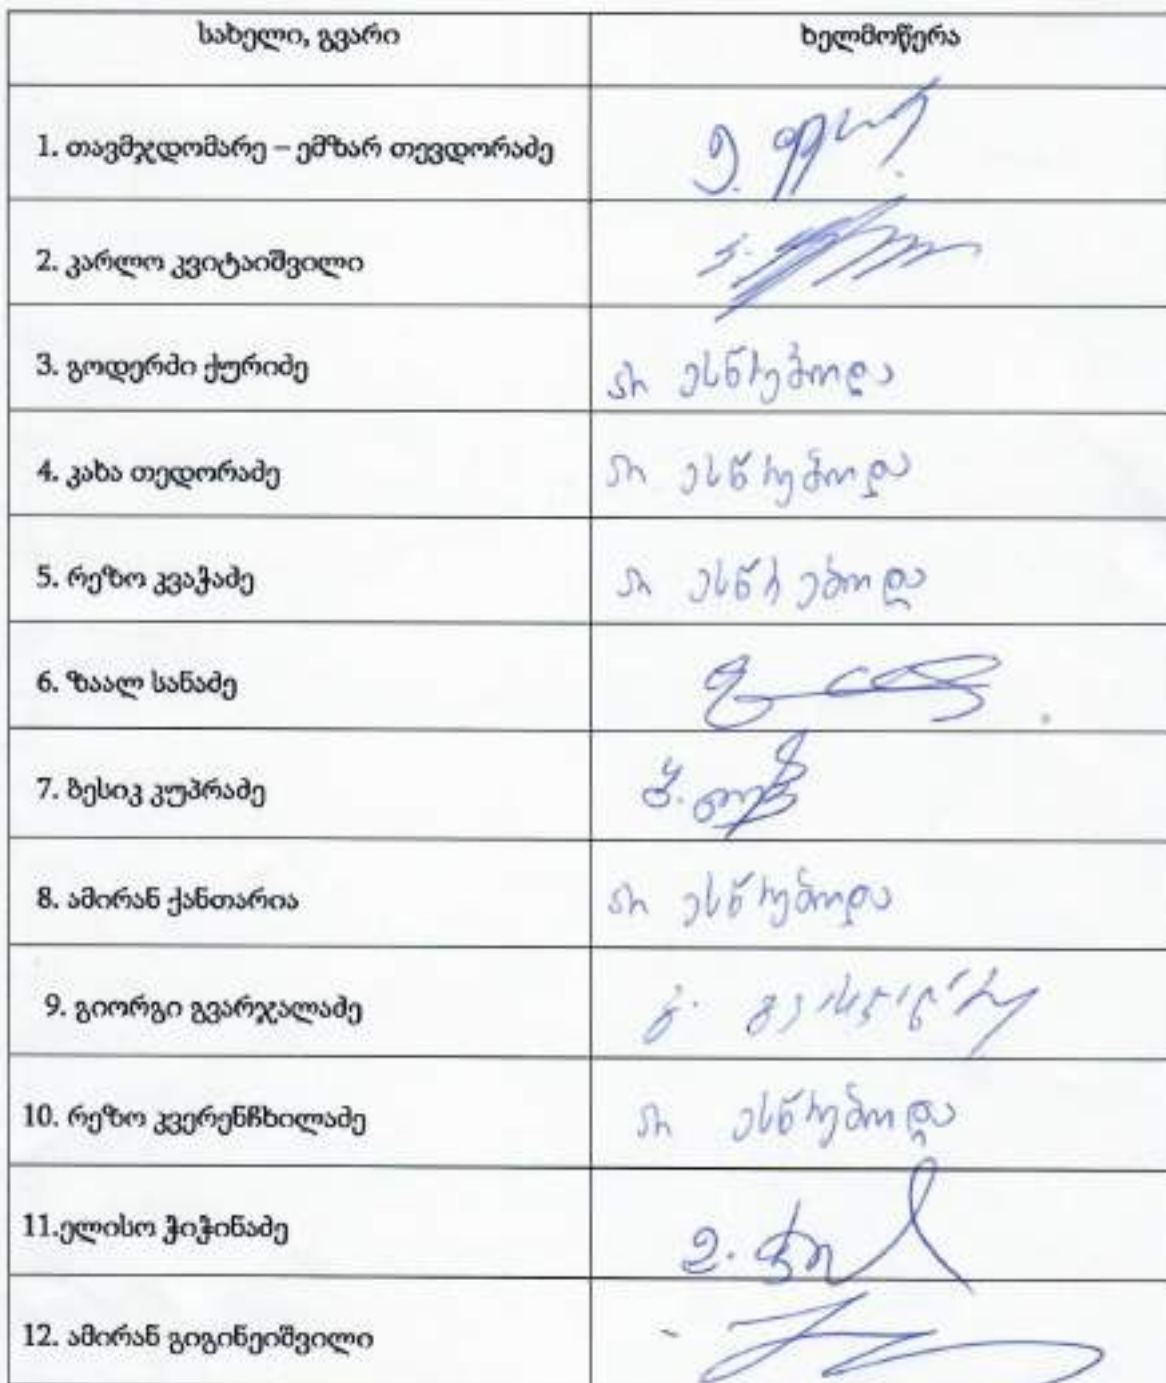 სახელი, გვარი ხელმოწერა
1. თავმჯდომარე – ემზარ თევდორაძე
2. კარლო კვიტაიშვილი
3. გოდერძი ქურიძე არ ესწრებოდა
4. კახა თედორაძე არ ესწრებოდა
5. რეზო კვაჭაძე არ ესწრებოდა
6. ზაალ სანაძე
7. ბესიკ კუპრაძე
8. ამირან ქანთარია არ ესწრებოდა
9. გიორგი გვარჯალაძე
10. რეზო კვერენჩხილაძე არ ესწრებოდა
11.ელისო ჭიჭინაძე
12. ამირან გიგინეიშვილი